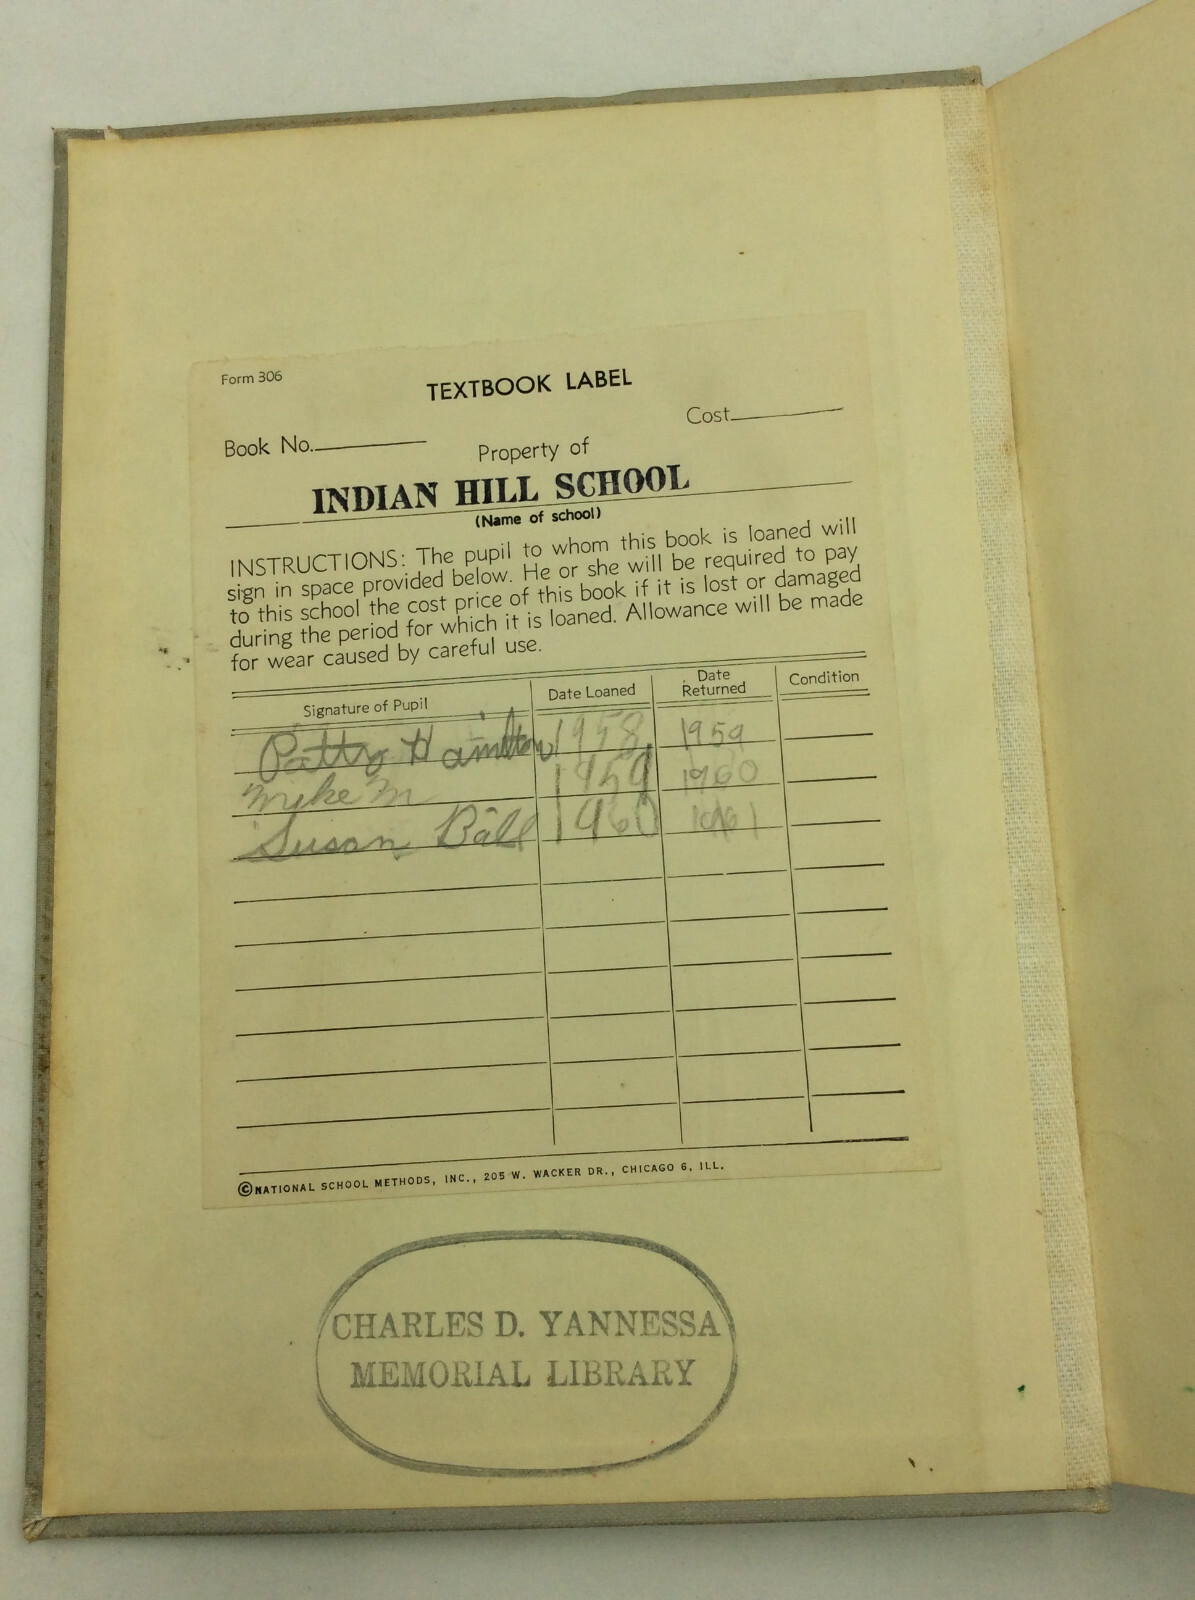 Form 306
TEXTBOOK LABEL
Cost
Book No.
Property of
INDIAN HILL SCHOOL
(Name of school)
INSTRUCTIONS: The pupil to whom this book is loaned will
sign in space provided below. He or she will be required to pay
to this school the cost price of this book if it is lost or damaged
during the period for which it is loaned. Allowance will be made
for wear caused by careful use.
Signature of Pupil Date Loaned Date Returned Condition
Patty Hamilton 1958 1959
Myke M 1959 1960
Susan Ball 1960 1961
©NATIONAL SCHOOL METHODS, INC., 205 W. WACKER DR., CHICAGO 6, ILL.
CHARLES D. YANNESSA
MEMORIAL LIBRARY